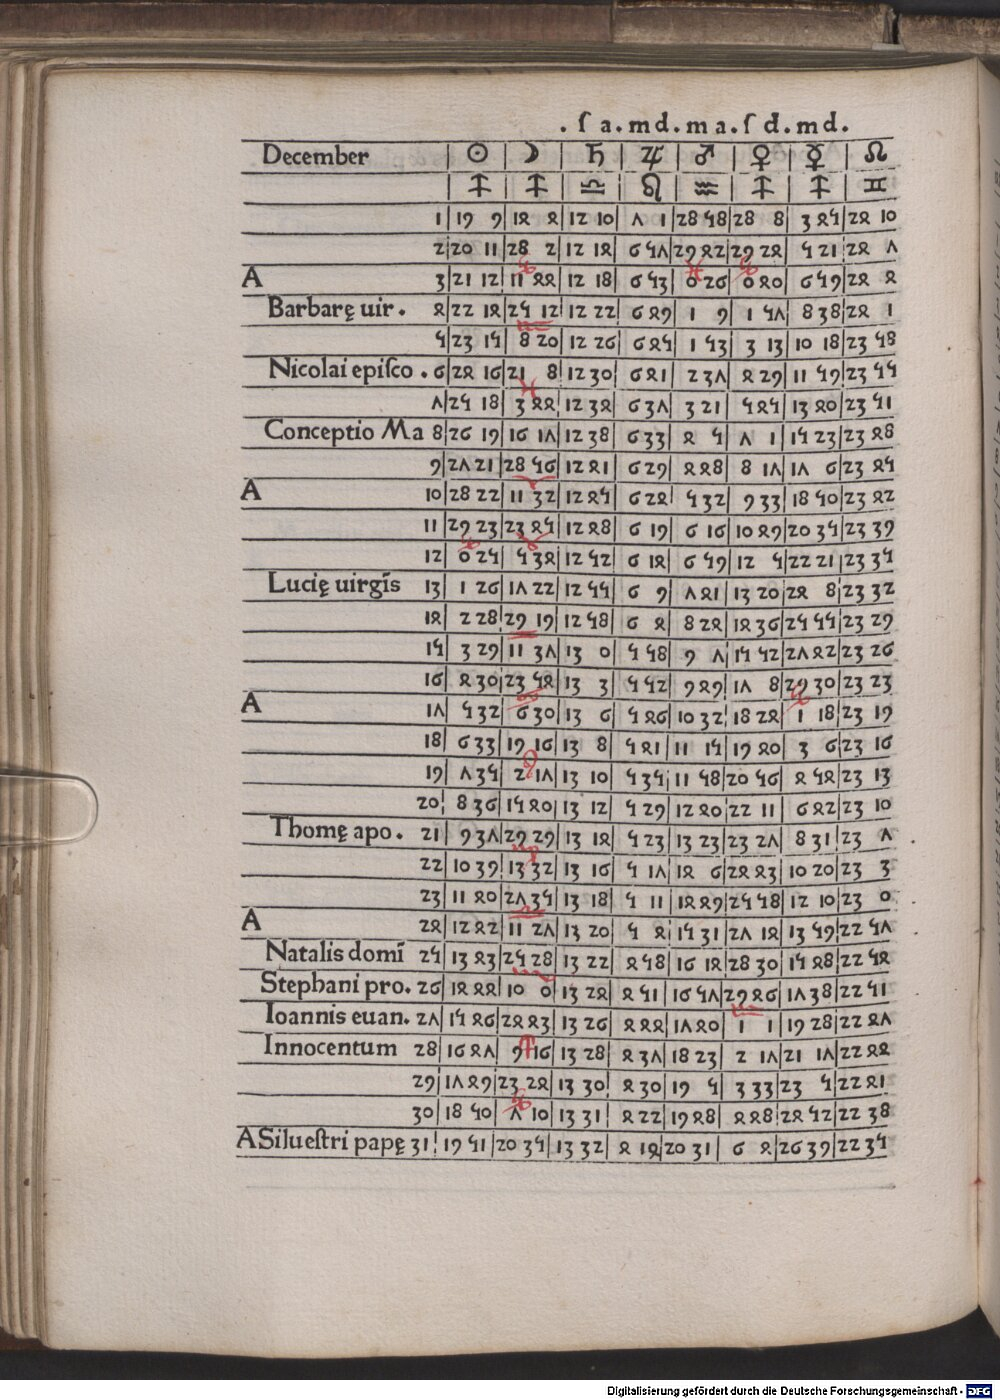 . ſ a . m d . m a . ſ d . m d .
December ☉ ☽ ♄ ♃ ♂ ♀ ☿ ☊
♐ ♐ ♎ ♌ ♒ ♐ ♐ ♊
1 19 9 14 4 12 10 7 1 28 58 28 8 3 45 24 10
2 20 11 28 2 12 14 6 57 29 42 29 24 5 21 24 7
A 3 21 12 11 44 12 18 6 53 0 26 0 40 6 59 24 4
Barbarę uir . 4 22 14 25 12 12 22 6 49 1 9 1 57 8 38 24 1
5 23 15 8 20 12 26 6 45 1 53 3 13 10 18 23 58
Nicolai epiſco . 6 24 16 21 8 12 30 6 41 2 37 4 29 11 59 23 55
7 25 18 3 44 12 34 6 37 3 21 5 45 13 40 23 51
Conceptio Ma 8 26 19 16 17 12 38 6 33 4 5 7 1 15 23 23 48
9 27 21 28 56 12 41 6 29 4 48 8 17 17 6 23 45
A 10 28 22 11 32 12 45 6 24 5 32 9 33 18 50 23 42
11 29 23 23 45 12 48 6 19 6 16 10 49 20 35 23 39
12 0 25 5 34 12 52 6 14 6 59 12 5 22 21 23 35
Lucię uirgīs 13 1 26 17 22 12 55 6 9 7 41 13 20 24 8 23 32
14 2 28 29 19 12 58 6 4 8 24 14 36 25 55 23 29
15 3 29 11 37 13 0 5 58 9 7 15 52 27 42 23 26
16 4 30 23 54 13 3 5 52 9 49 17 8 29 30 23 23
A 17 5 32 6 30 13 6 5 46 10 32 18 24 1 18 23 19
18 6 33 19 16 13 8 5 41 11 15 19 40 3 6 23 16
19 7 35 2 17 13 10 5 35 11 58 20 56 4 54 23 13
20 8 36 15 40 13 12 5 29 12 40 22 11 6 42 23 10
Thomę apo . 21 9 37 29 29 13 14 5 23 13 23 23 27 8 31 23 7
22 10 39 13 32 13 16 5 17 14 6 24 43 10 20 23 3
23 11 40 27 35 13 18 5 11 14 49 25 58 12 10 23 0
A 24 12 42 11 27 13 20 5 4 15 31 27 14 13 59 22 57
Natalis domī 25 13 43 25 28 13 22 4 58 16 14 28 30 15 48 22 54
Stephani pro. 26 14 44 10 0 13 24 4 51 16 57 29 46 17 38 22 51
Ioannis euan. 27 15 46 24 43 13 26 4 44 17 40 1 1 19 28 22 47
Innocentum 28 16 47 9 16 13 28 4 37 18 23 2 17 21 17 22 44
29 17 49 23 24 13 30 4 30 19 5 3 33 23 5 22 41
30 18 50 7 10 13 31 4 22 19 48 4 48 24 52 22 38
A Silueſtri papę 31 19 51 20 35 13 32 4 14 20 31 6 4 26 39 22 35
Digitalisierung gefördert durch die Deutsche Forschungsgemeinschaft - DFG